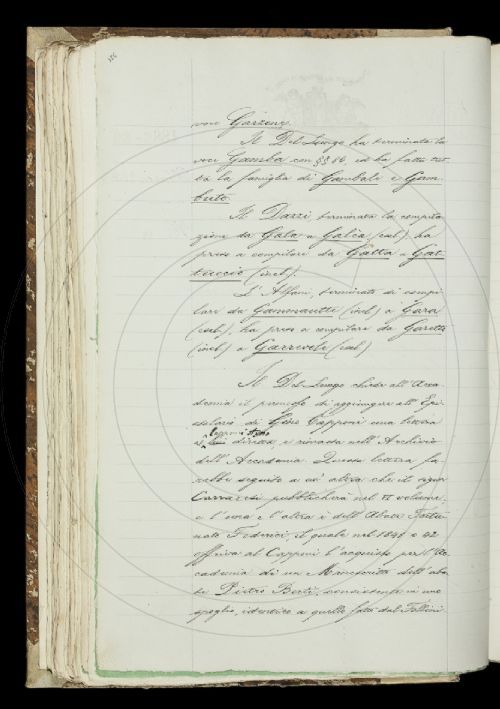 voce Garzone.
Il Del Lungo ha terminata la
voce Gamba con §§ 86 ed ha fatta tut-
ta la famiglia di Gambale e Gam-
buto.
Il Dazzi, terminata la compila-
zione da Gala a Galèa (escl.), ha
preso a compilare da Gatta a Gat-
tuccio (incl.).
L'Alfani, terminato di compi-
lare da Gammautte (incl.) a Gara
(escl.), ha preso a compilare da Garetta
(incl.) a Garrevole (escl.)
Il Del Lungo chiede all'Acca-
demia il permesso di aggiungere all'Epi-
stolario di Gino Capponi una lettera
a diretta, e trovata nell'Archivio
dell'Accademia. Questa lettera fa-
rebbe seguito a un'altra che il signor
Carraresi pubblicherà nel VI volume,
e l'una e l'altra è dell'Abate Fortu-
nato Federici, il quale nel 1841 e 42
offriva al Capponi l'acquisto per l'Ac-
cademia di un Manoscritto dell'aba-
te Pietro Berti, consistente in uno
spoglio, identico a quello fatto dal Follini